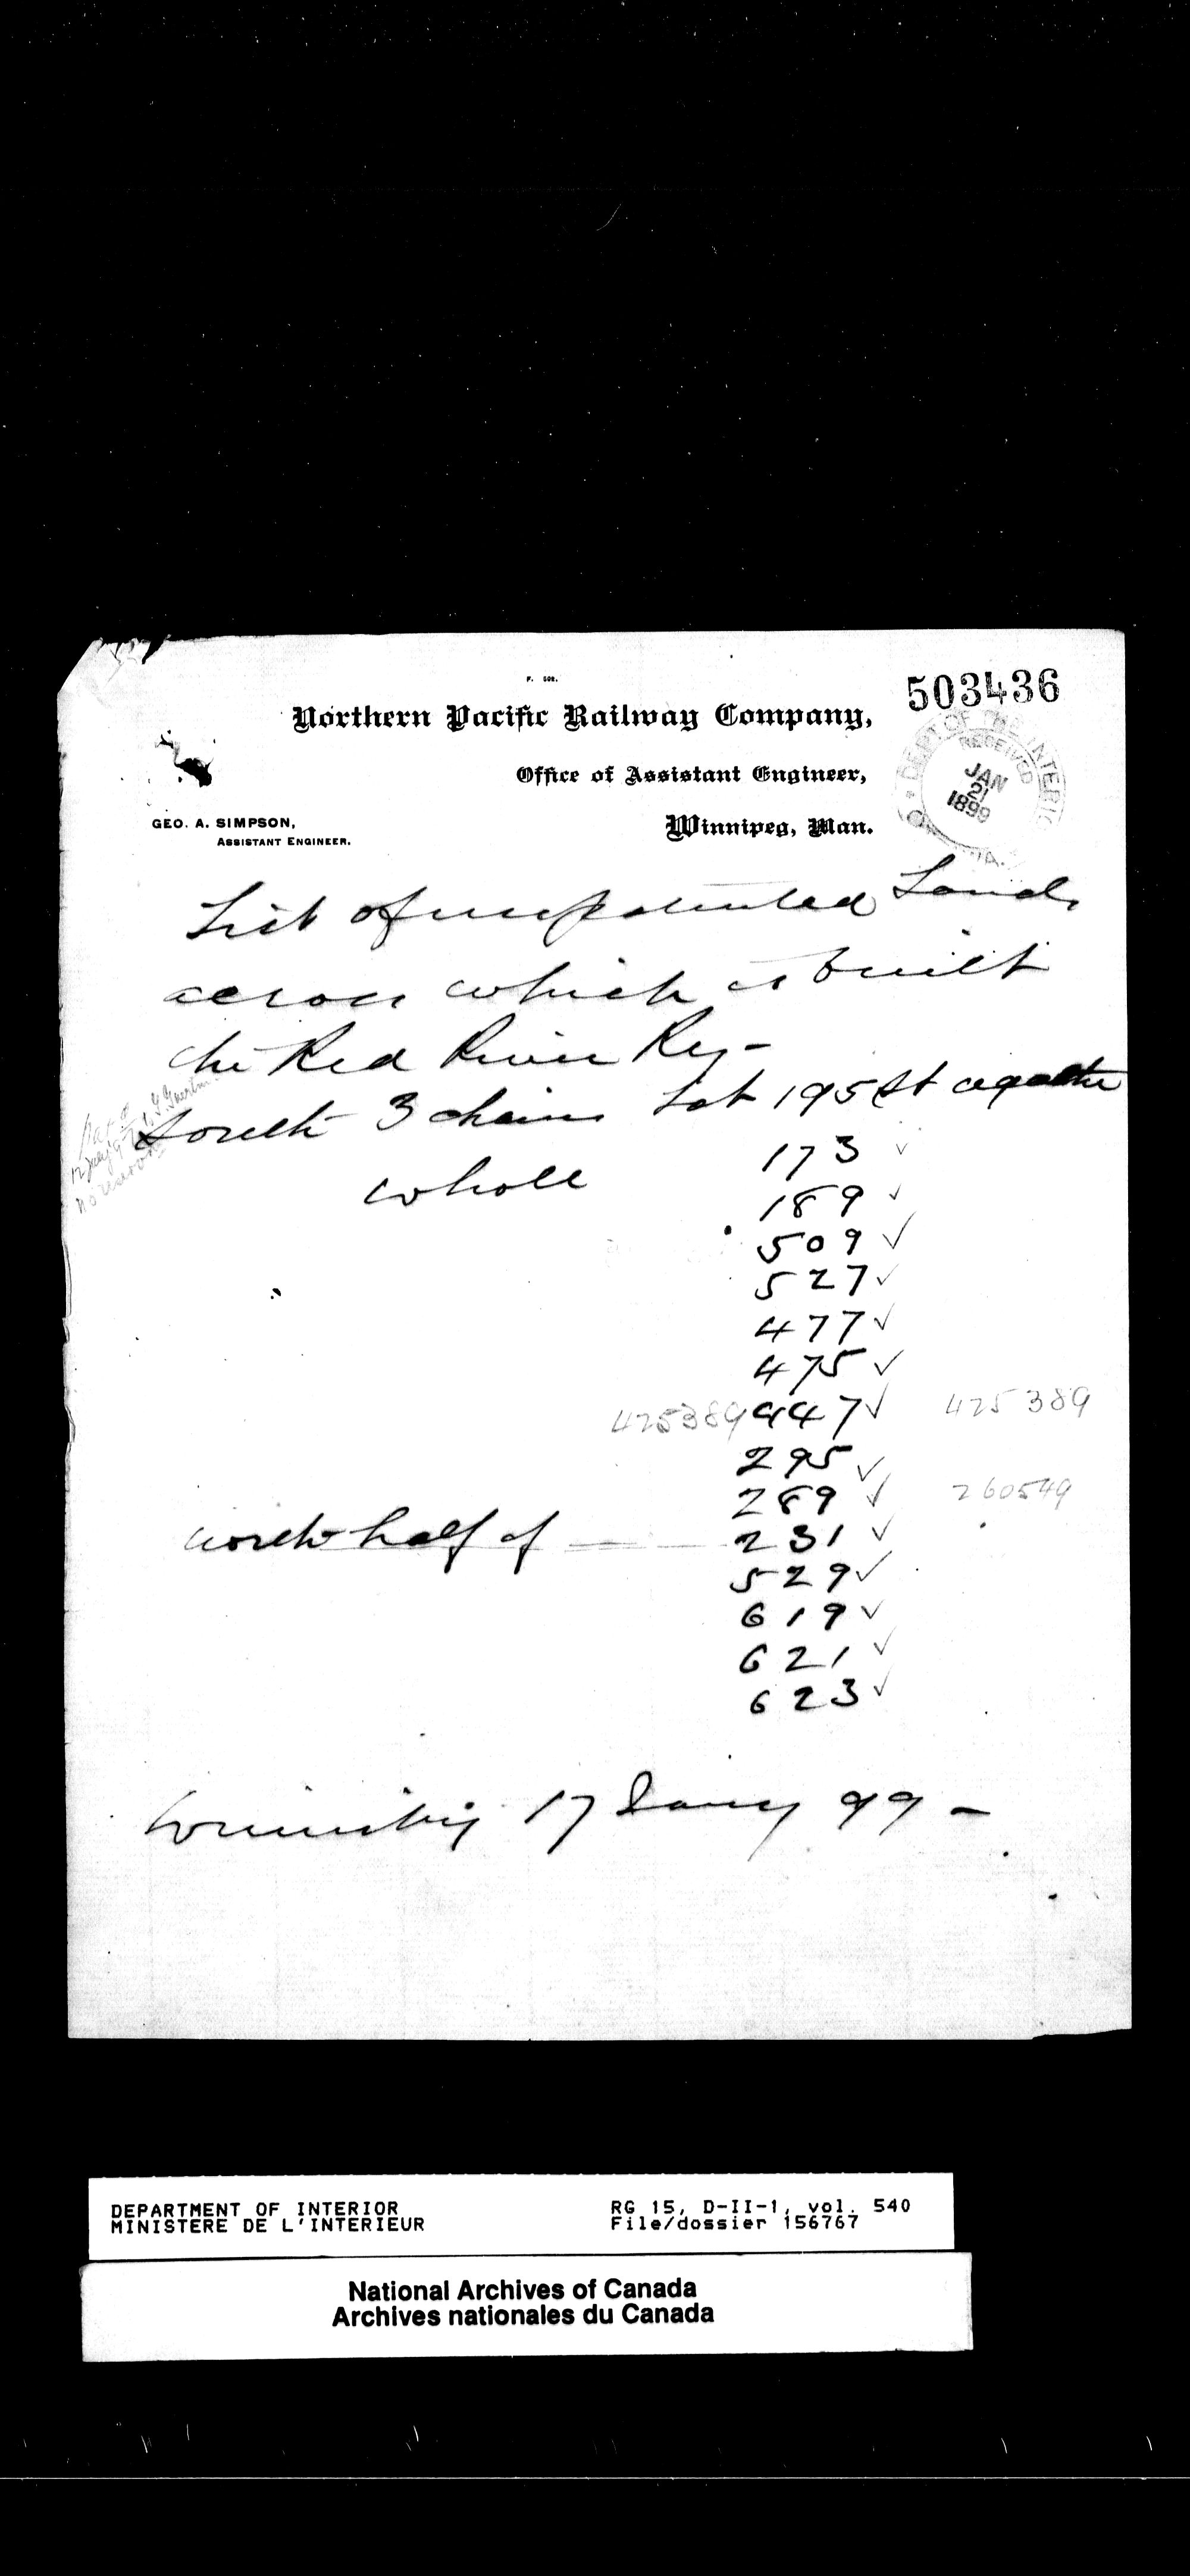 F. 502.
503436
Northern Pacific Railway Company,
DEPT OF THE INTERIOR
RECEIVED
JAN
21
1899
Office of Assistant Engineer,
GEO. A. SIMPSON,
ASSISTANT ENGINEER.
Winnipeg, Man.
List of unpatented Lands
across which is built
the Red River Ry -
South 3 chains Lot 195 St agathe
173 ✓
whole
189 ✓
509 ✓
527 ✓
477 ✓
475 ✓
425389 447 ✓ 425389
295 ✓
289 ✓ 260549
north half of 231 ✓
529 ✓
619 ✓
621 ✓
623 ✓
Winnipeg 17 Jany 99 -
DEPARTMENT OF INTERIOR
MINISTERE DE L'INTERIEUR
RG 15, D-II-1, vol. 540
File/dossier 156767
National Archives of Canada
Archives nationales du Canada